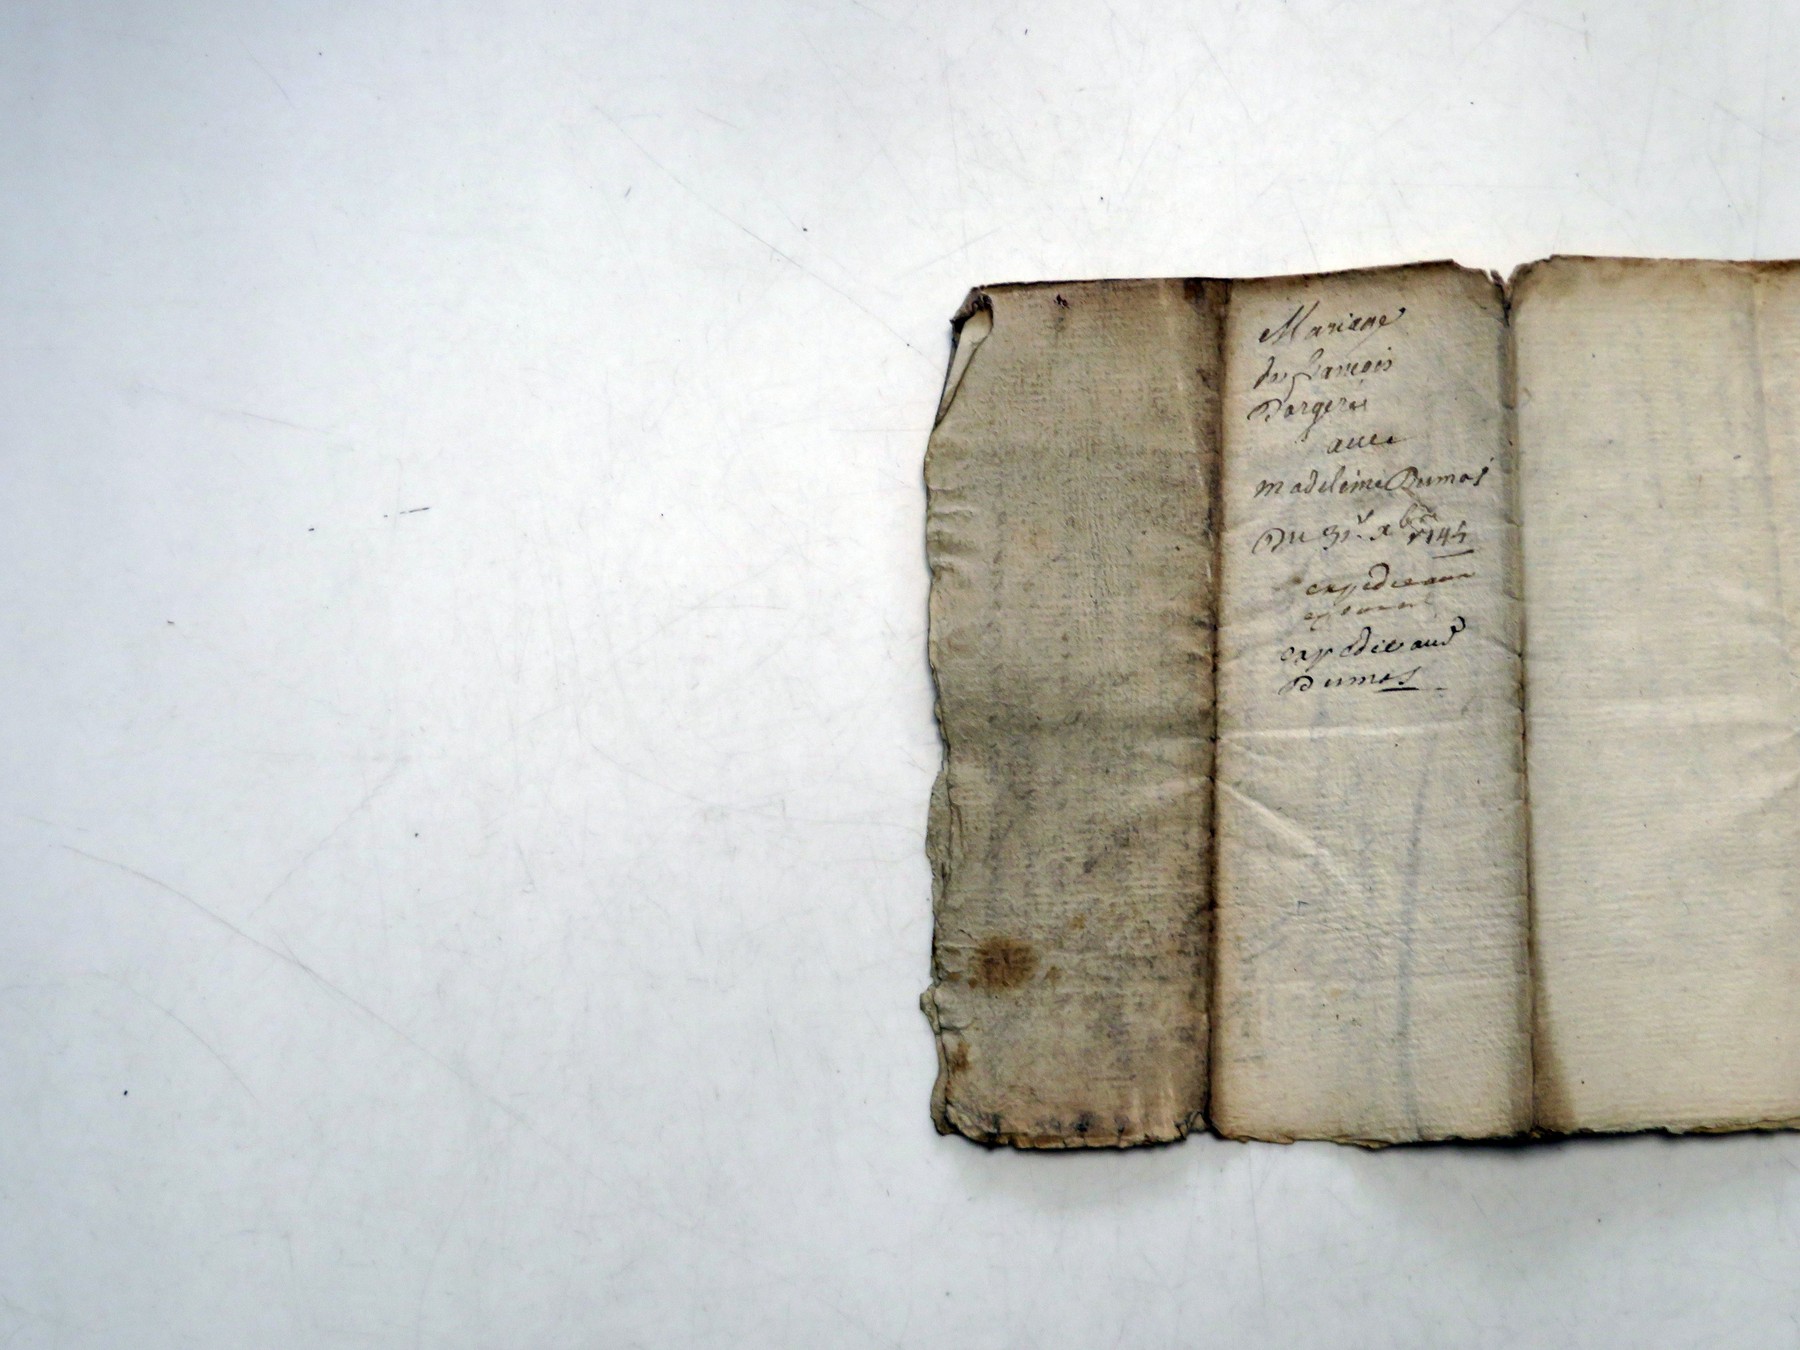 Mariage
de francois
Dargera
auec
madeleine Dumas
Du 31.e xbre 1745
expedie aux
expedie aud
Dumas